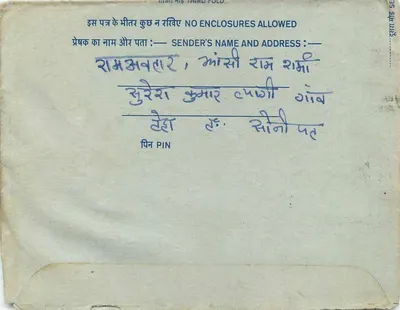 तीसरा मोड़ THIRD FOLD
इस पत्र के भीतर कुछ न रखिए NO ENCLOSURES ALLOWED
प्रेषक का नाम और पता :— SENDER'S NAME AND ADDRESS :—
रामअवतार, झांसी राम शर्मा
सुरेश कुमार त्यागी गांव
सोनीपत
पिन PIN